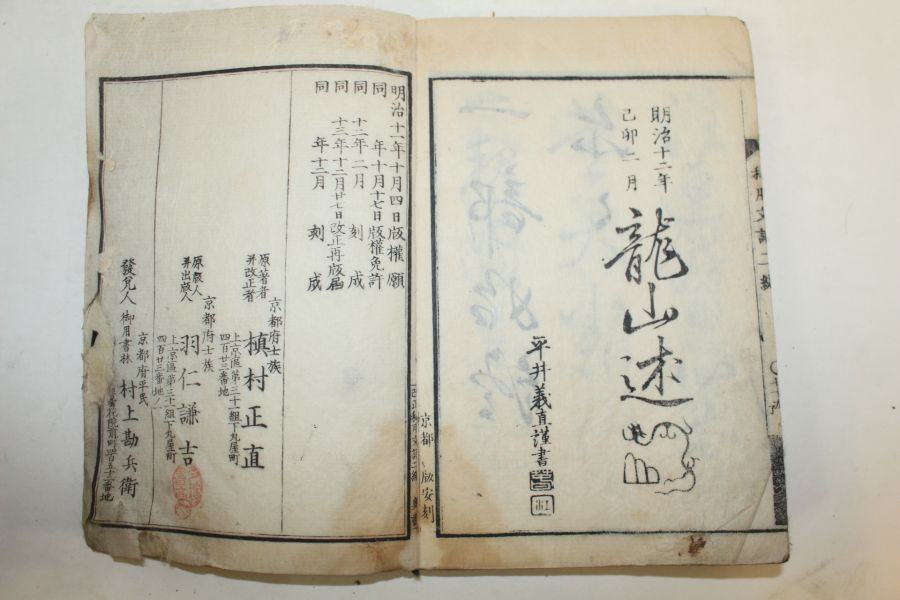 明治十二年
己卯二月
龍山述
平井義直謹書
明治十一年十月四日版權願
同 年十月十七日版權免許
同 十二年二月 刻成
同 十三年十二月廿七日改正再版届
同 年十二月 刻成
原著者
并改正者
京都府士族
槙村正直
上京區第三十一組下丸屋町
四百廿三番地
原版人
并出版人
京都府士族
羽仁謙吉
上京區第三十一組下丸屋町
四百廿三番地
發兌人
御用書林
京都府平民
村上勘兵衛
京都
版安刻